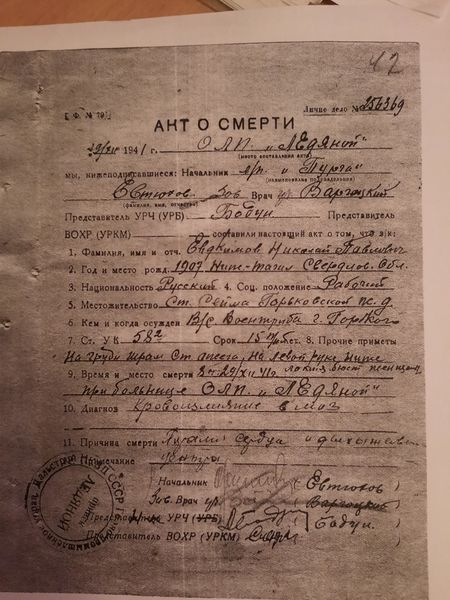 42
Ф. № 19
Личное дело № 256369
АКТ О СМЕРТИ
29/XII 1941 г. ОЛП. „ЛЕдяной"
(место составления акта)
мы, нижеподписавшиеся: Начальник л/п. „Пурга"
(наименование подразделения)
Евтюхов Зав. Врач Варгоцкий
(фамилия, имя, отчество)
Представитель УРЧ (УРБ) Бодун Представитель
ВОХР (УРКМ) составили настоящий акт о том, что з/к:
1. Фамилия, имя и отч. Евдокимов Николай Павлович
2. Год и место рожд. 1907. Ниж-Тагил Свердлов. Обл.
3. Национальность Русский 4. Соц. положение Рабочий
5. Местожительство Ст. Сейма Горьковской ж. д.
6. Кем и когда осужден В/С Воентриба г. Горького
7. Ст. УК 58² Срок 15 лет. 8. Прочие приметы
На груди шрам от ожога, на левой руке ниже
9. Время и место смерти 29/XII 41 г.
при больнице ОЛП. „ЛЕдяной"
10. Диагноз Кровоизлияние в мозг
11. Причина смерти Паралич сердца и дыхательн.
Примечание центра
Начальник Евтюхов
Зав. Врач Варгоцкий
Представитель УРЧ (УРБ) Бодун
Представитель ВОХР (УРКМ)